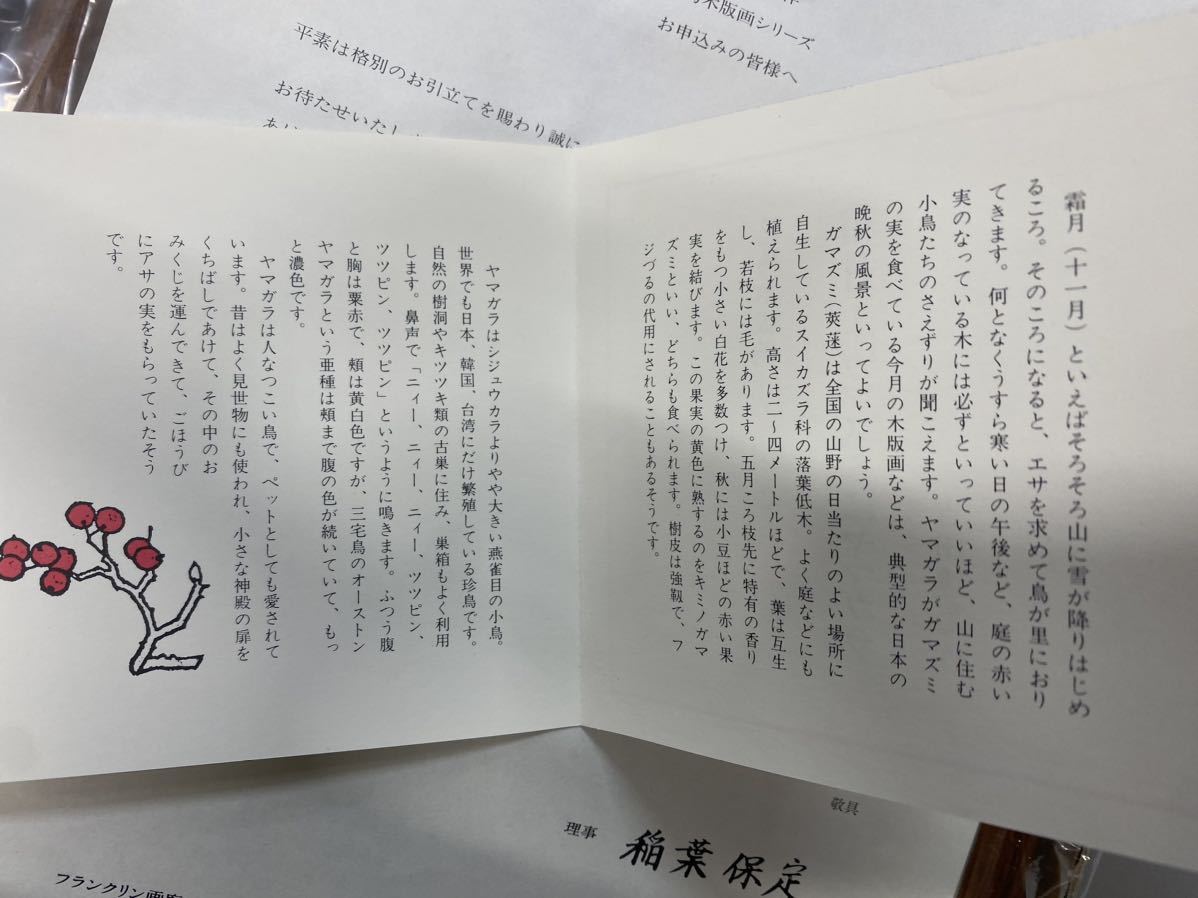 木版画シリーズ
お申込みの皆様へ
平素は格別のお引立てを賜わり誠に
お待たせいたしま
霜月(十一月)といえばそろそろ山に雪が降りはじめ
るころ。そのころになると、エサを求めて鳥が里におり
てきます。何となくうすら寒い日の午後など、庭の赤い
実のなっている木には必ずといっていいほど、山に住む
小鳥たちのさえずりが聞こえます。ヤマガラがガマズミ
の実を食べている今月の木版画などは、典型的な日本の
晩秋の風景といってよいでしょう。
ガマズミ(莢蒾)は全国の山野の日当たりのよい場所に
自生しているスイカズラ科の落葉低木。よく庭などにも
植えられます。高さは二〜四メートルほどで、葉は互生
し、若枝には毛があります。五月ころ枝先に特有の香り
をもつ小さい白花を多数つけ、秋には小豆ほどの赤い果
実を結びます。この果実の黄色に熟するのをキミノガマ
ズミといい、どちらも食べられます。樹皮は強靱で、フ
ジづるの代用にされることもあるそうです。
ヤマガラはシジュウカラよりやや大きい燕雀目の小鳥。
世界でも日本、韓国、台湾にだけ繁殖している珍鳥です。
自然の樹洞やキツツキ類の古巣に住み、巣箱もよく利用
します。鼻声で「ニィー、ニィー、ニィー、ツツピン、
ツツピン、ツツピン」というように鳴きます。ふつう腹
と胸は栗赤で、頬は黄白色ですが、三宅島のオーストン
ヤマガラという亜種は頬まで腹の色が続いていて、もっ
と濃色です。
ヤマガラは人なつこい鳥で、ペットとしても愛されて
います。昔はよく見世物にも使われ、小さな神殿の扉を
くちばしであけて、その中のお
みくじを運んできて、ごほうび
にアサの実をもらっていたそう
です。
敬具
理事 稲葉保定
フランクリン画廊